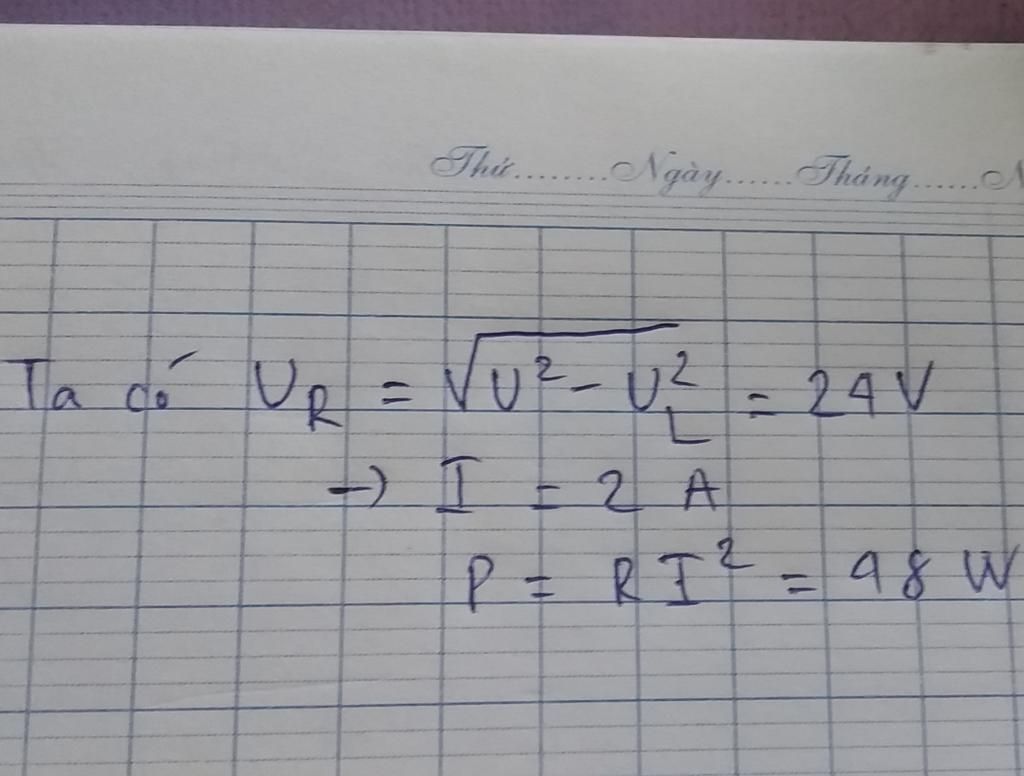 Thứ........Ngày......Tháng......N
Ta có U_R = √(U² - U_L²) = 24 V
→ I = 2 A
P = R I² = 48 W